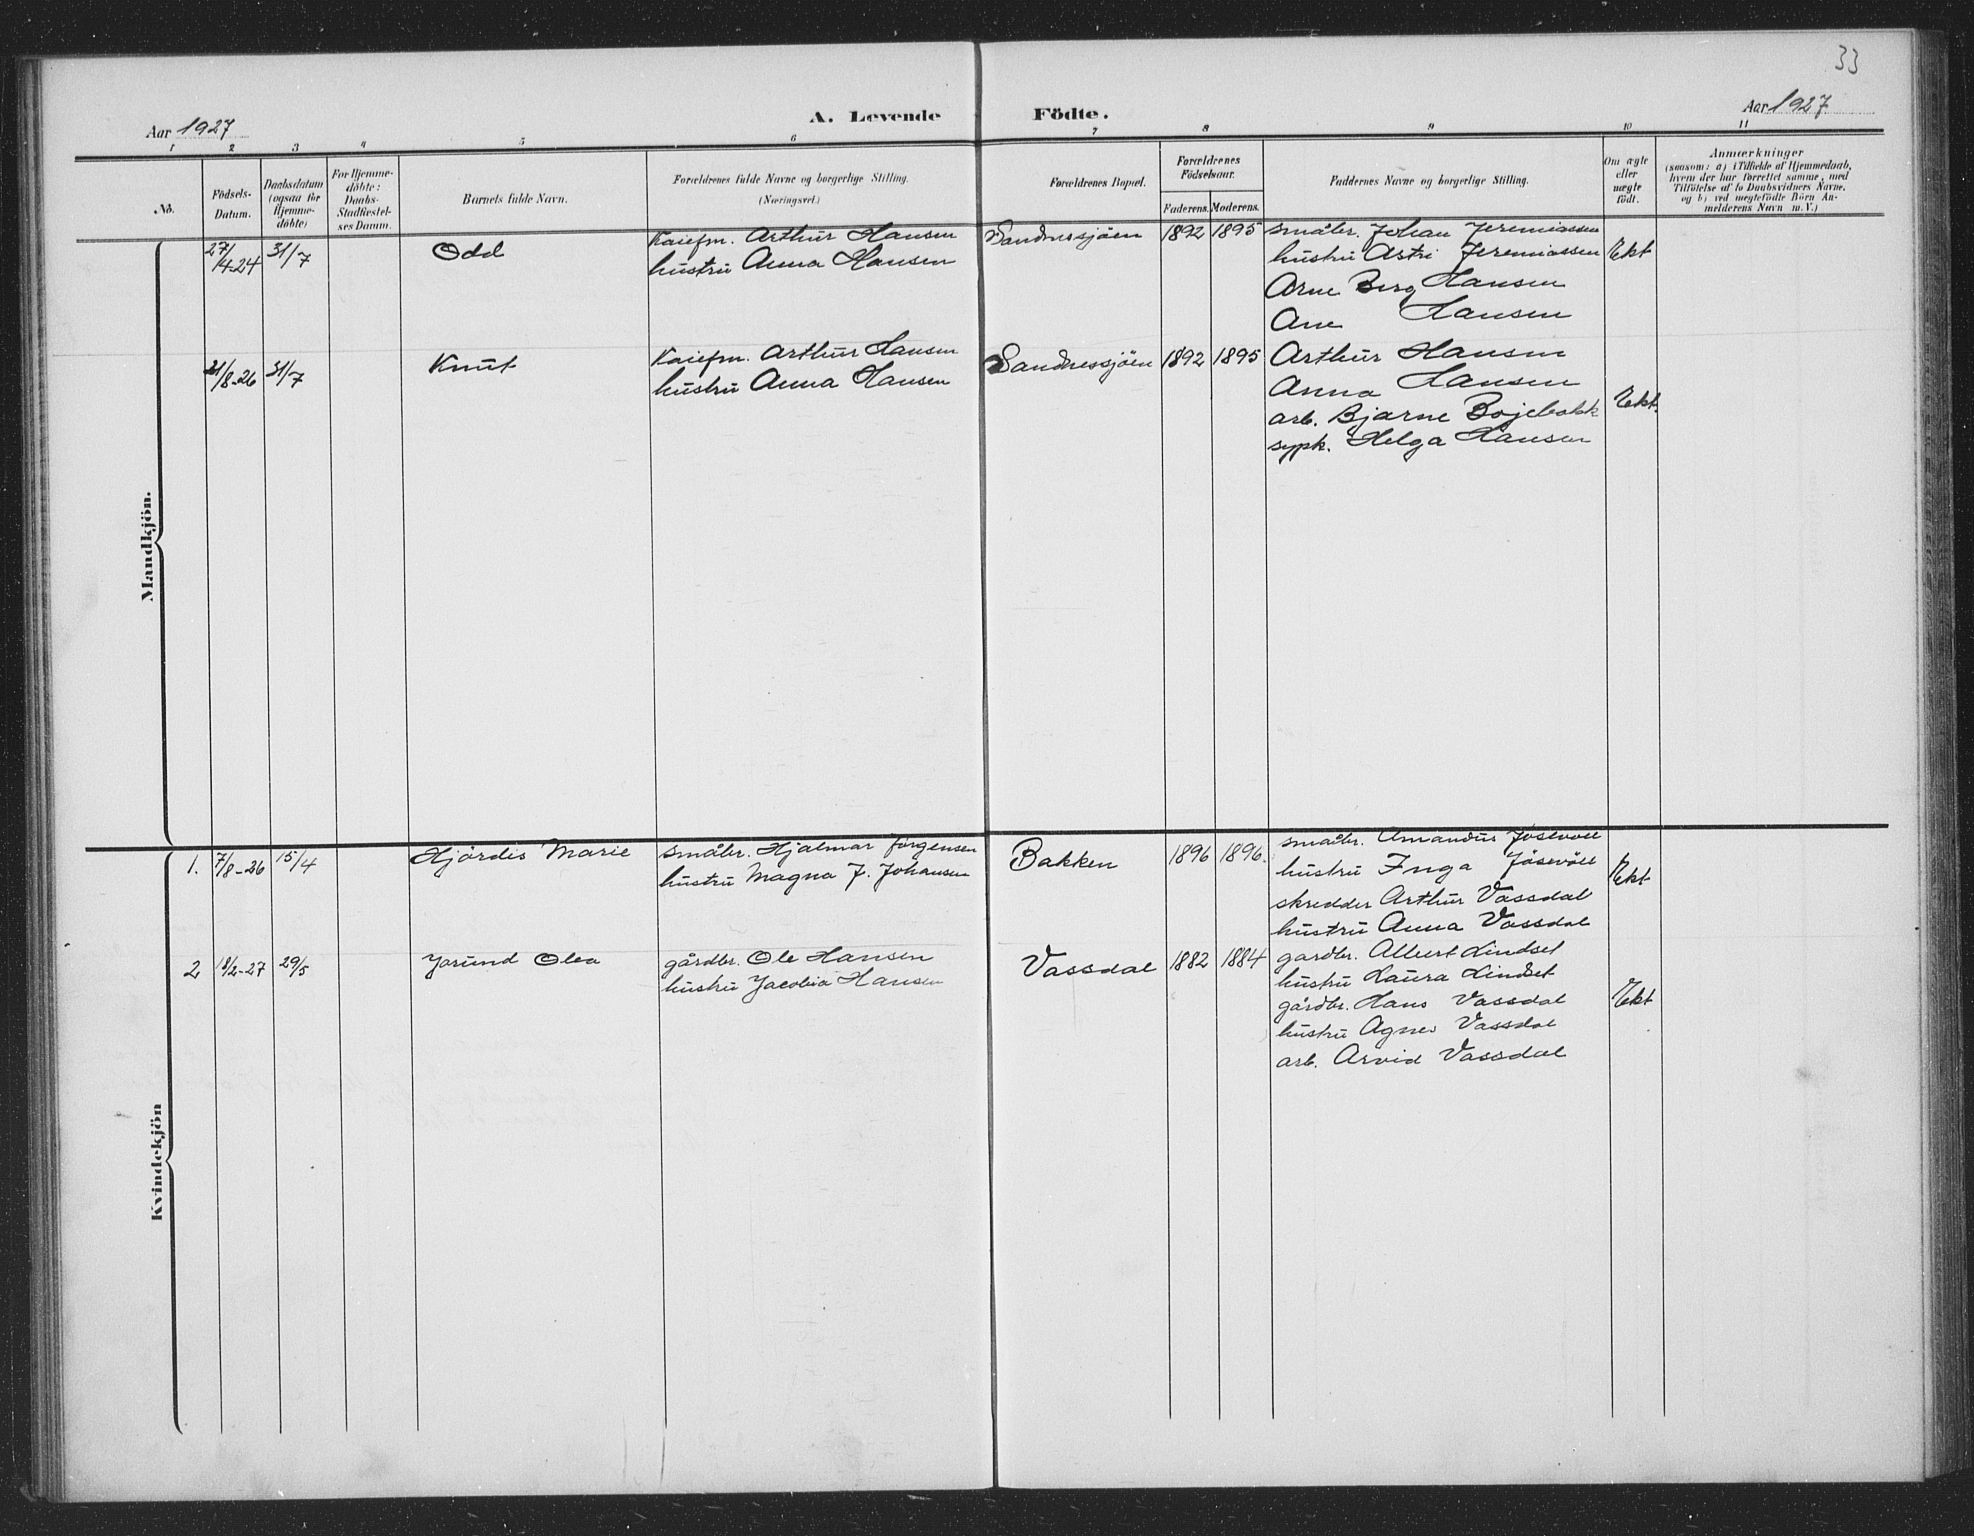 33
Aar 1927 A. Levende Födte. Aar 1927
1 2 3 4 5 6 7 8 9 10 11
No.
Födsels-
Datum.
Daabsdatum
(ogsaa for
Hjemme-
döbte)
For Hjemme-
döbte:
Daabs-
Stadfæstel-
ses Datum.
Barnets fulde Navn.
Forældrenes fulde Navne og borgerlige Stilling.
(Næringsvei.)
Forældrenes Bopæl.
Forældrenes
Födselsaar.
Faderens. Moderens.
Faddernes Navne og borgerlige Stilling.
Om ægte
eller
uægte
födt.
Anmærkninger
(saasom: a) i Tilfælde af Hjemmedaab,
hvem der har forrettet samme, med
Tilföielse af to Daabsvidners Navne,
og b) ved uægtefödte Börn An-
melderens Navn m. V.)
Mandkjön.
27/ 31/7 Odd Kaiefm. Arthur Hansen Sandnessjöen 1892 1895 småbr. Johan Jeremiassen
14-24 hustru Anna Hansen hustru Astri Jeremiassen Ekt
Arne Berg Hansen
Ane Hansen
21/8-26 31/7 Knut Kaiefm. Arthur Hansen Sandnessjöen 1892 1895 Arthur Hansen
hustru Anna Hansen Anna Hansen
arb. Bjarne Ekt.
sypk. Helga Hansen
Kvindekjön
1. 7/8-26 15/4 Hjördis Marie småbr. Hjalmar Jörgensen Bakken 1896 1896. småbr. Amandus Jösevöll
hustru Magna J. Johansen hustru Inga Jösevöll Ekt
skredder Arthur Vassdal
hustru Anna Vassdal
2 18/2-27 29/5 Jorund Olea gårdbr. Ole Hansen Vassdal 1882 1884 gardbr. Albert Lindset
hustru Jacobia Hansen hustru Laura Lindset
gårdbr. Hans Vassdal Ekt
hustru Agnes Vassdal
arb. Arvid Vassdal